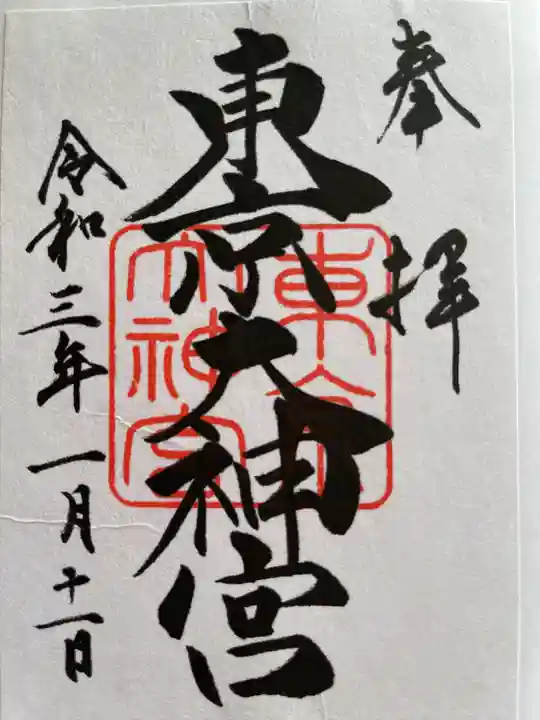 奉拝
東京大神宮
令和三年一月十一日
東京
大神宮